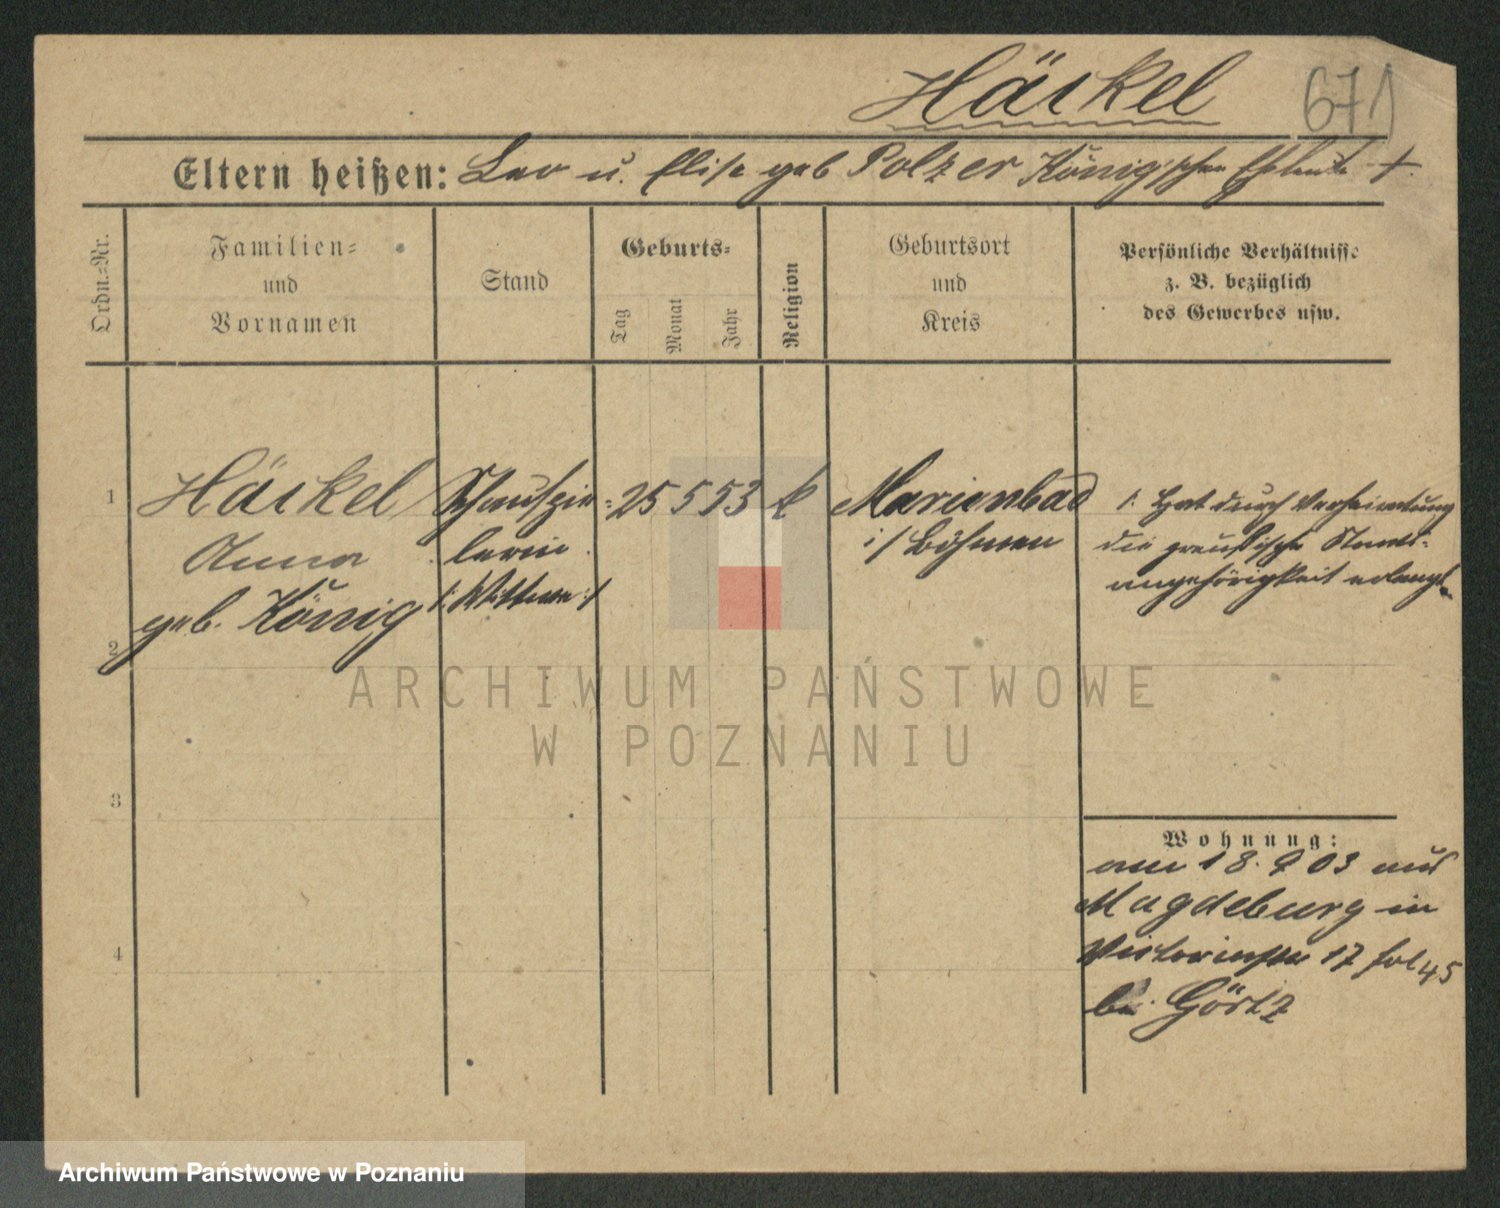 Häckel 671
Eltern heißen: Leo u. Elise geb Polzer König'schen Eheleute †.
Ordn.-Nr.
Familien-
und
Vornamen
Stand
Geburts-
Tag
Monat
Jahr
Religion
Geburtsort
und
Kreis
Persönliche Verhältnisse
z. B. bezüglich
des Gewerbes usw.
1
Häckel
Anna
geb. König
Schauspie-
lerin
/: Wittwe :/
25 5 53
k
Marienbad
i/ Böhmen
/: Hat durch Verheiratung
die preußische Staats-
angehörigkeit erlangt.
2
3
4
Wohnung:
am 18. 9 03 aus
Magdeburg in
Victoriastr 17 fol 45
bei Görtz
ARCHIWUM PAŃSTWOWE
W POZNANIU
Archiwum Państwowe w Poznaniu